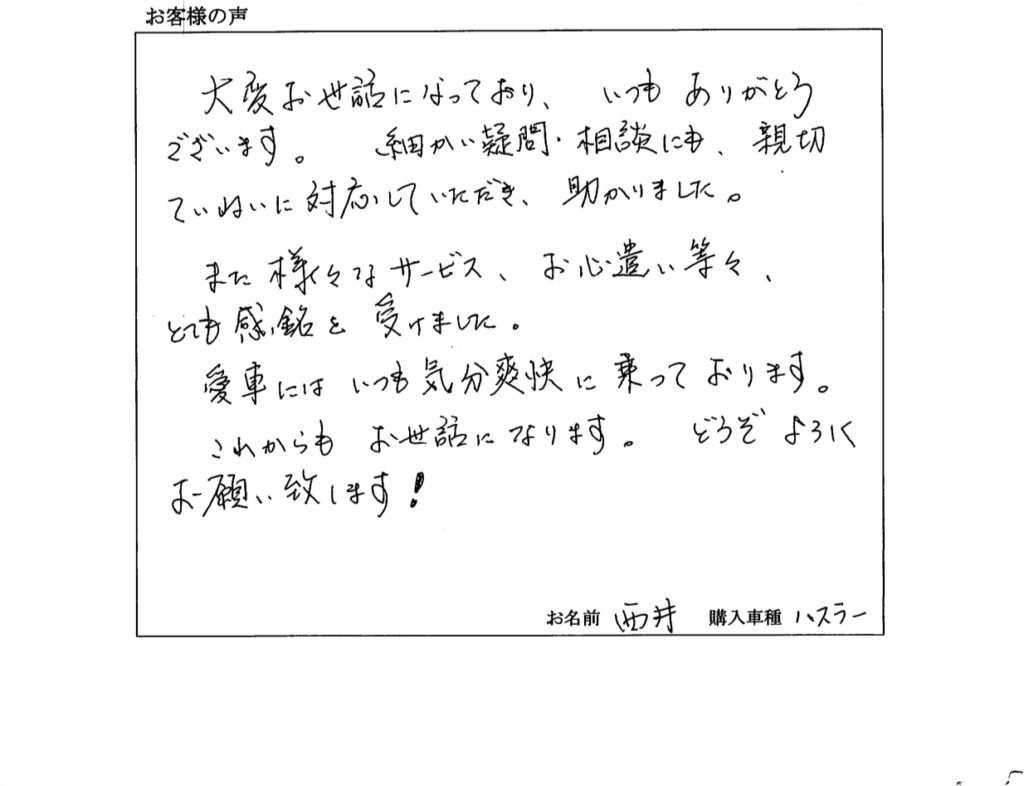 お客様の声
大変お世話になっており、 いつも ありがとう
ございます。 細かい疑問・相談にも、親切
ていねいに対応していただき、助かりました。
また様々なサービス、お心遣い等々、
とても感銘を受けました。
愛車には いつも気分爽快に乗っております。
これからも お世話になります。 どうぞ よろしく
お願い致します!
お名前 西井 購入車種 ハスラー